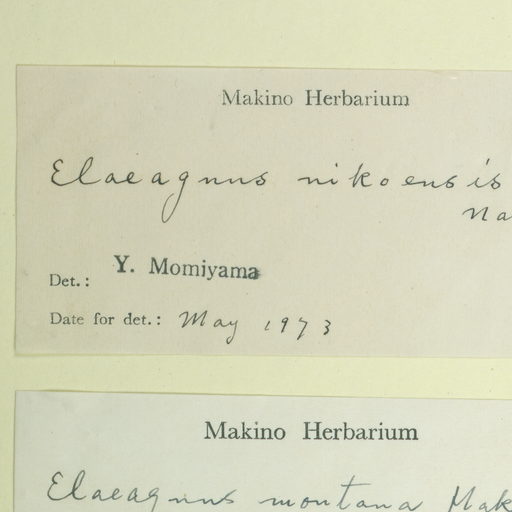 Makino Herbarium
Elaeagnus nikoensis
Na
Det.: Y. Momiyama
Date for det.: May 1973
Makino Herbarium
Elaeagnus montana Mak